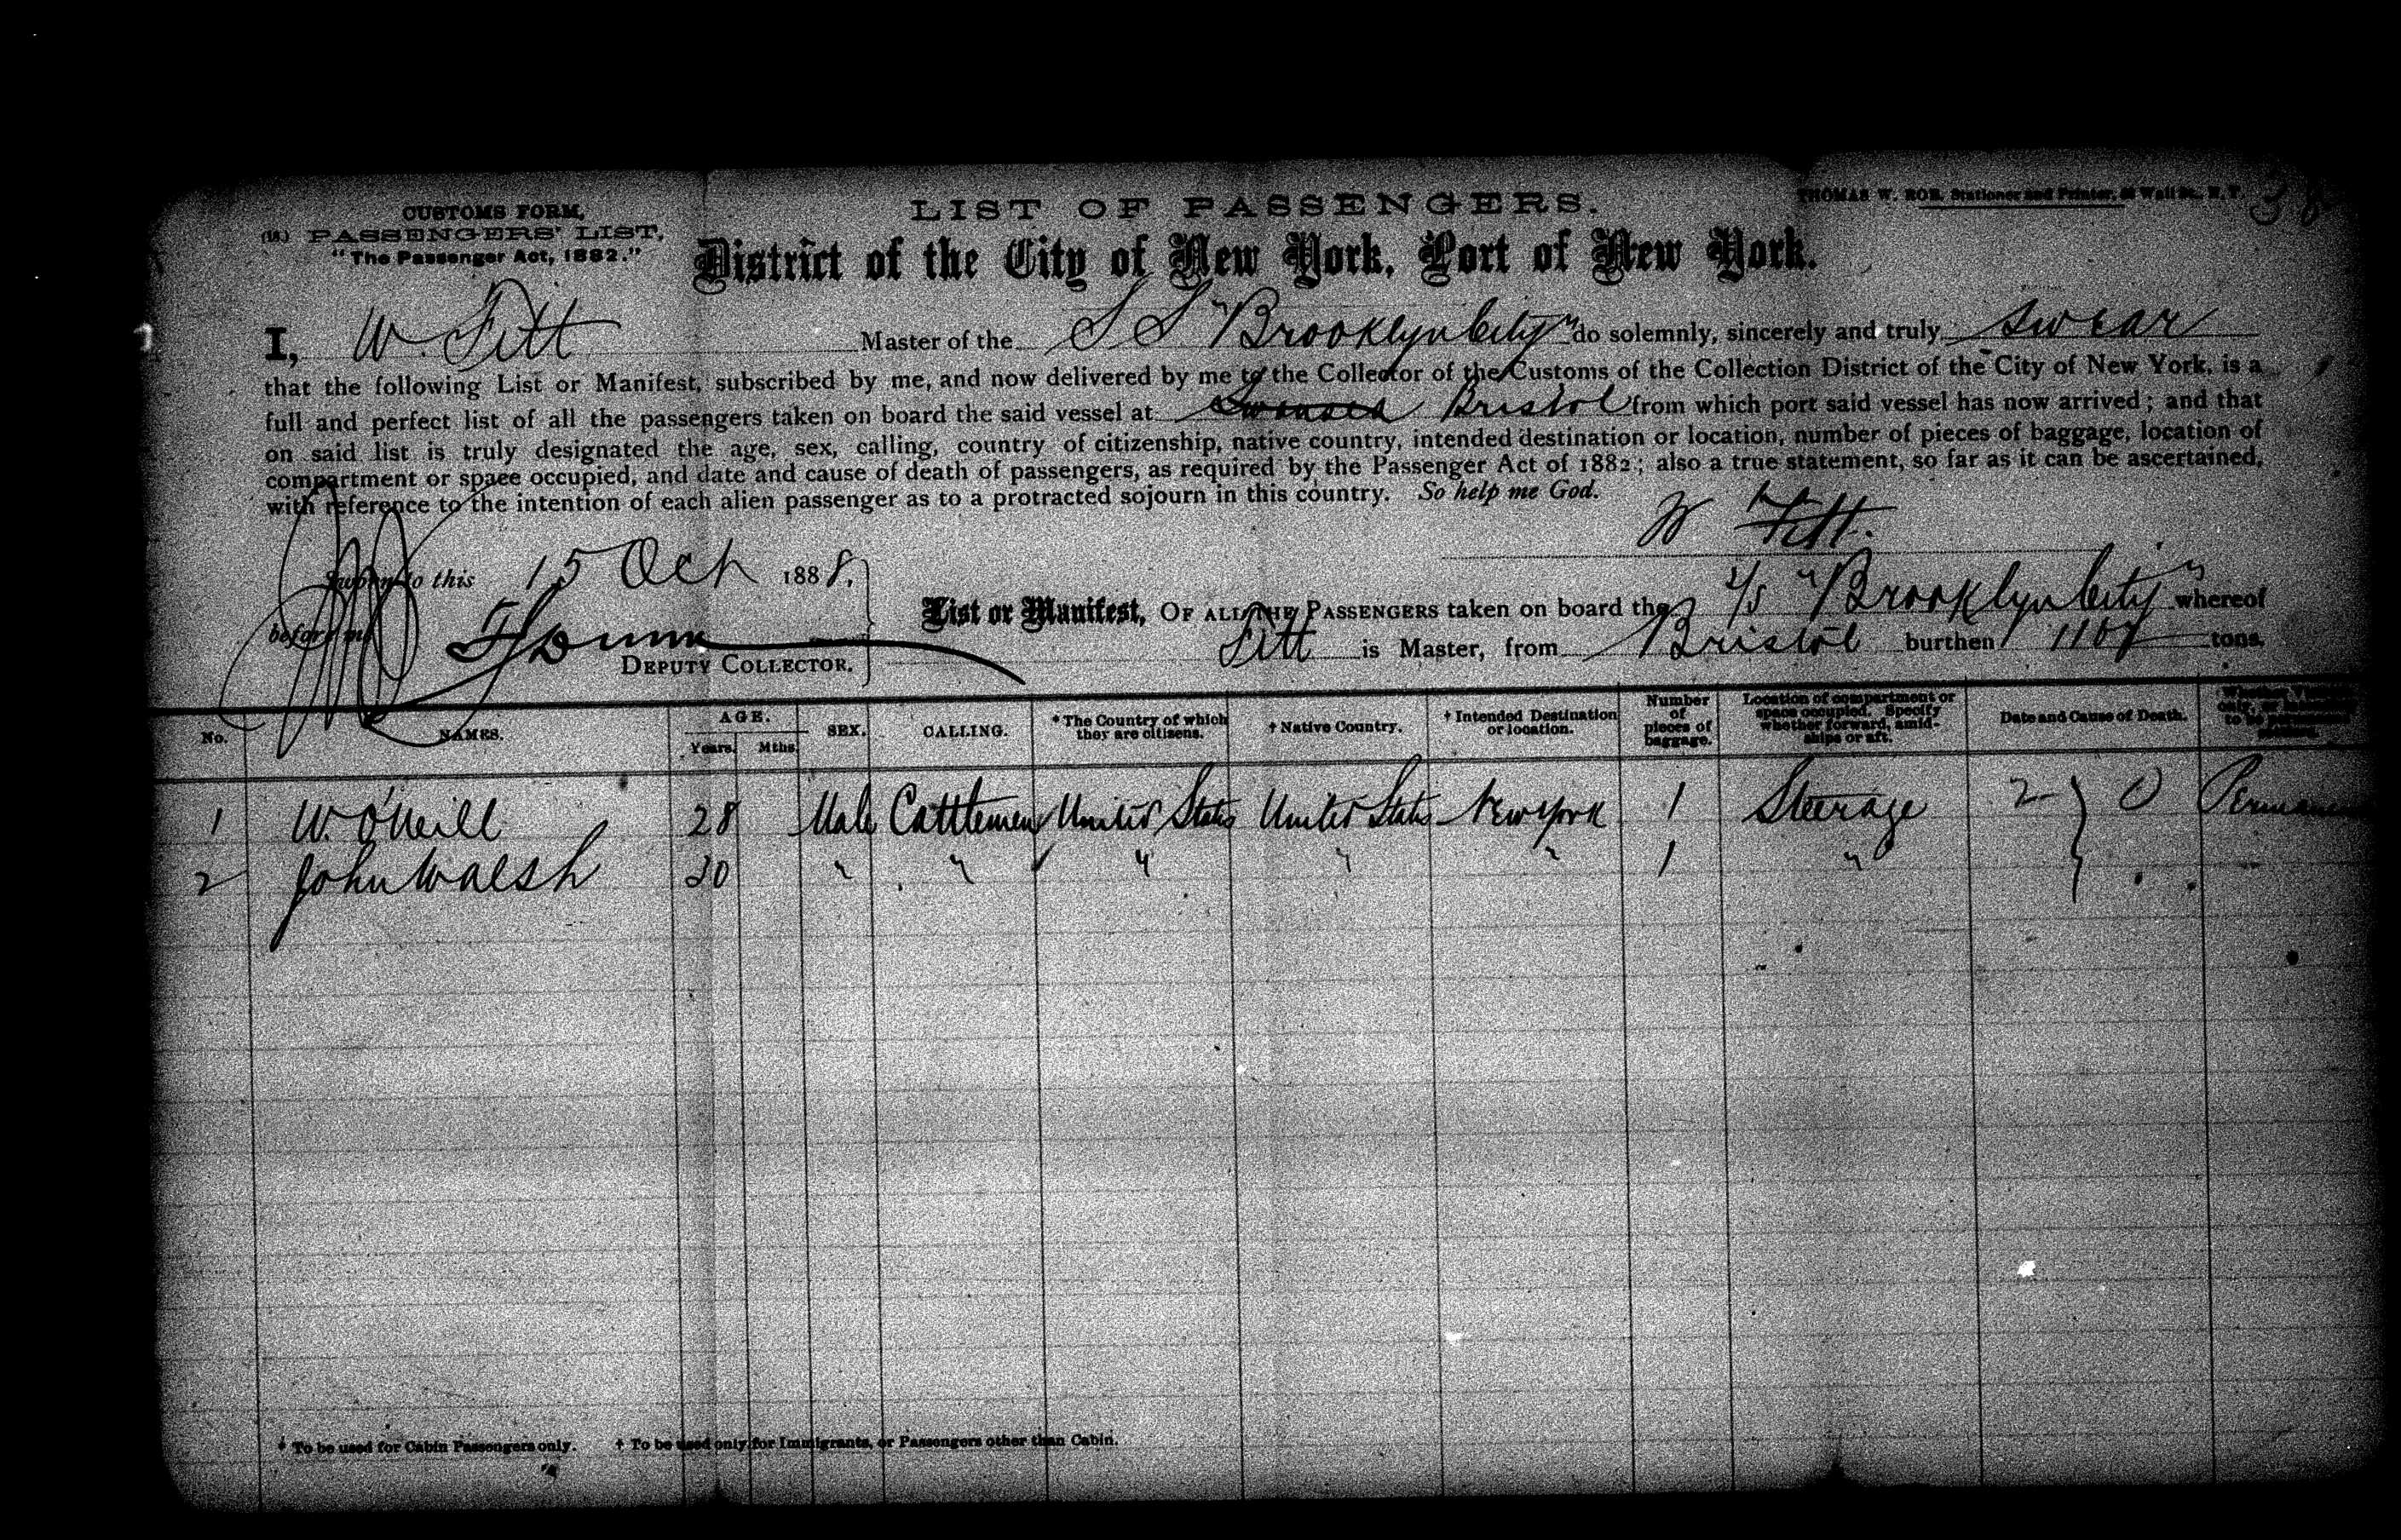 THOMAS W. ROE, Stationer and Printer, Wall St., N.Y.
CUSTOMS FORM,
PASSENGERS' LIST,
"The Passenger Act, 1882."
LIST OF PASSENGERS.
District of the City of New York, Port of New York.
I, W. Fitt Master of the S S "Brooklyn City" do solemnly, sincerely and truly swear
that the following List or Manifest, subscribed by me, and now delivered by me to the Collector of the Customs of the Collection District of the City of New York, is a
full and perfect list of all the passengers taken on board the said vessel at Swansea Bristol from which port said vessel has now arrived; and that
on said list is truly designated the age, sex, calling, country of citizenship, native country, intended destination or location, number of pieces of baggage, location of
compartment or space occupied, and date and cause of death of passengers, as required by the Passenger Act of 1882; also a true statement, so far as it can be ascertained,
with reference to the intention of each alien passenger as to a protracted sojourn in this country. So help me God.
W Fitt.
Sworn to this 15 Oct 1888,
before me
DEPUTY COLLECTOR.
List or Manifest, OF ALL THE PASSENGERS taken on board the s/s "Brooklyn City" whereof
Fitt is Master, from Bristol burthen tons.
No. NAMES. AGE. Years. Mths. SEX. CALLING. * The Country of which they are citizens. † Native Country. † Intended Destination or location. Number of pieces of baggage. Location of compartment or space occupied. Specify whether forward, amidships or aft. Date and Cause of Death.
1 W. O'Neill 28 Male Cattlemen United States United States New York 1 Steerage 2 } 0 Permanent
2 John Walsh 30 " " " " " 1 "
* To be used for Cabin Passengers only. † To be used only for Immigrants, or Passengers other than Cabin.